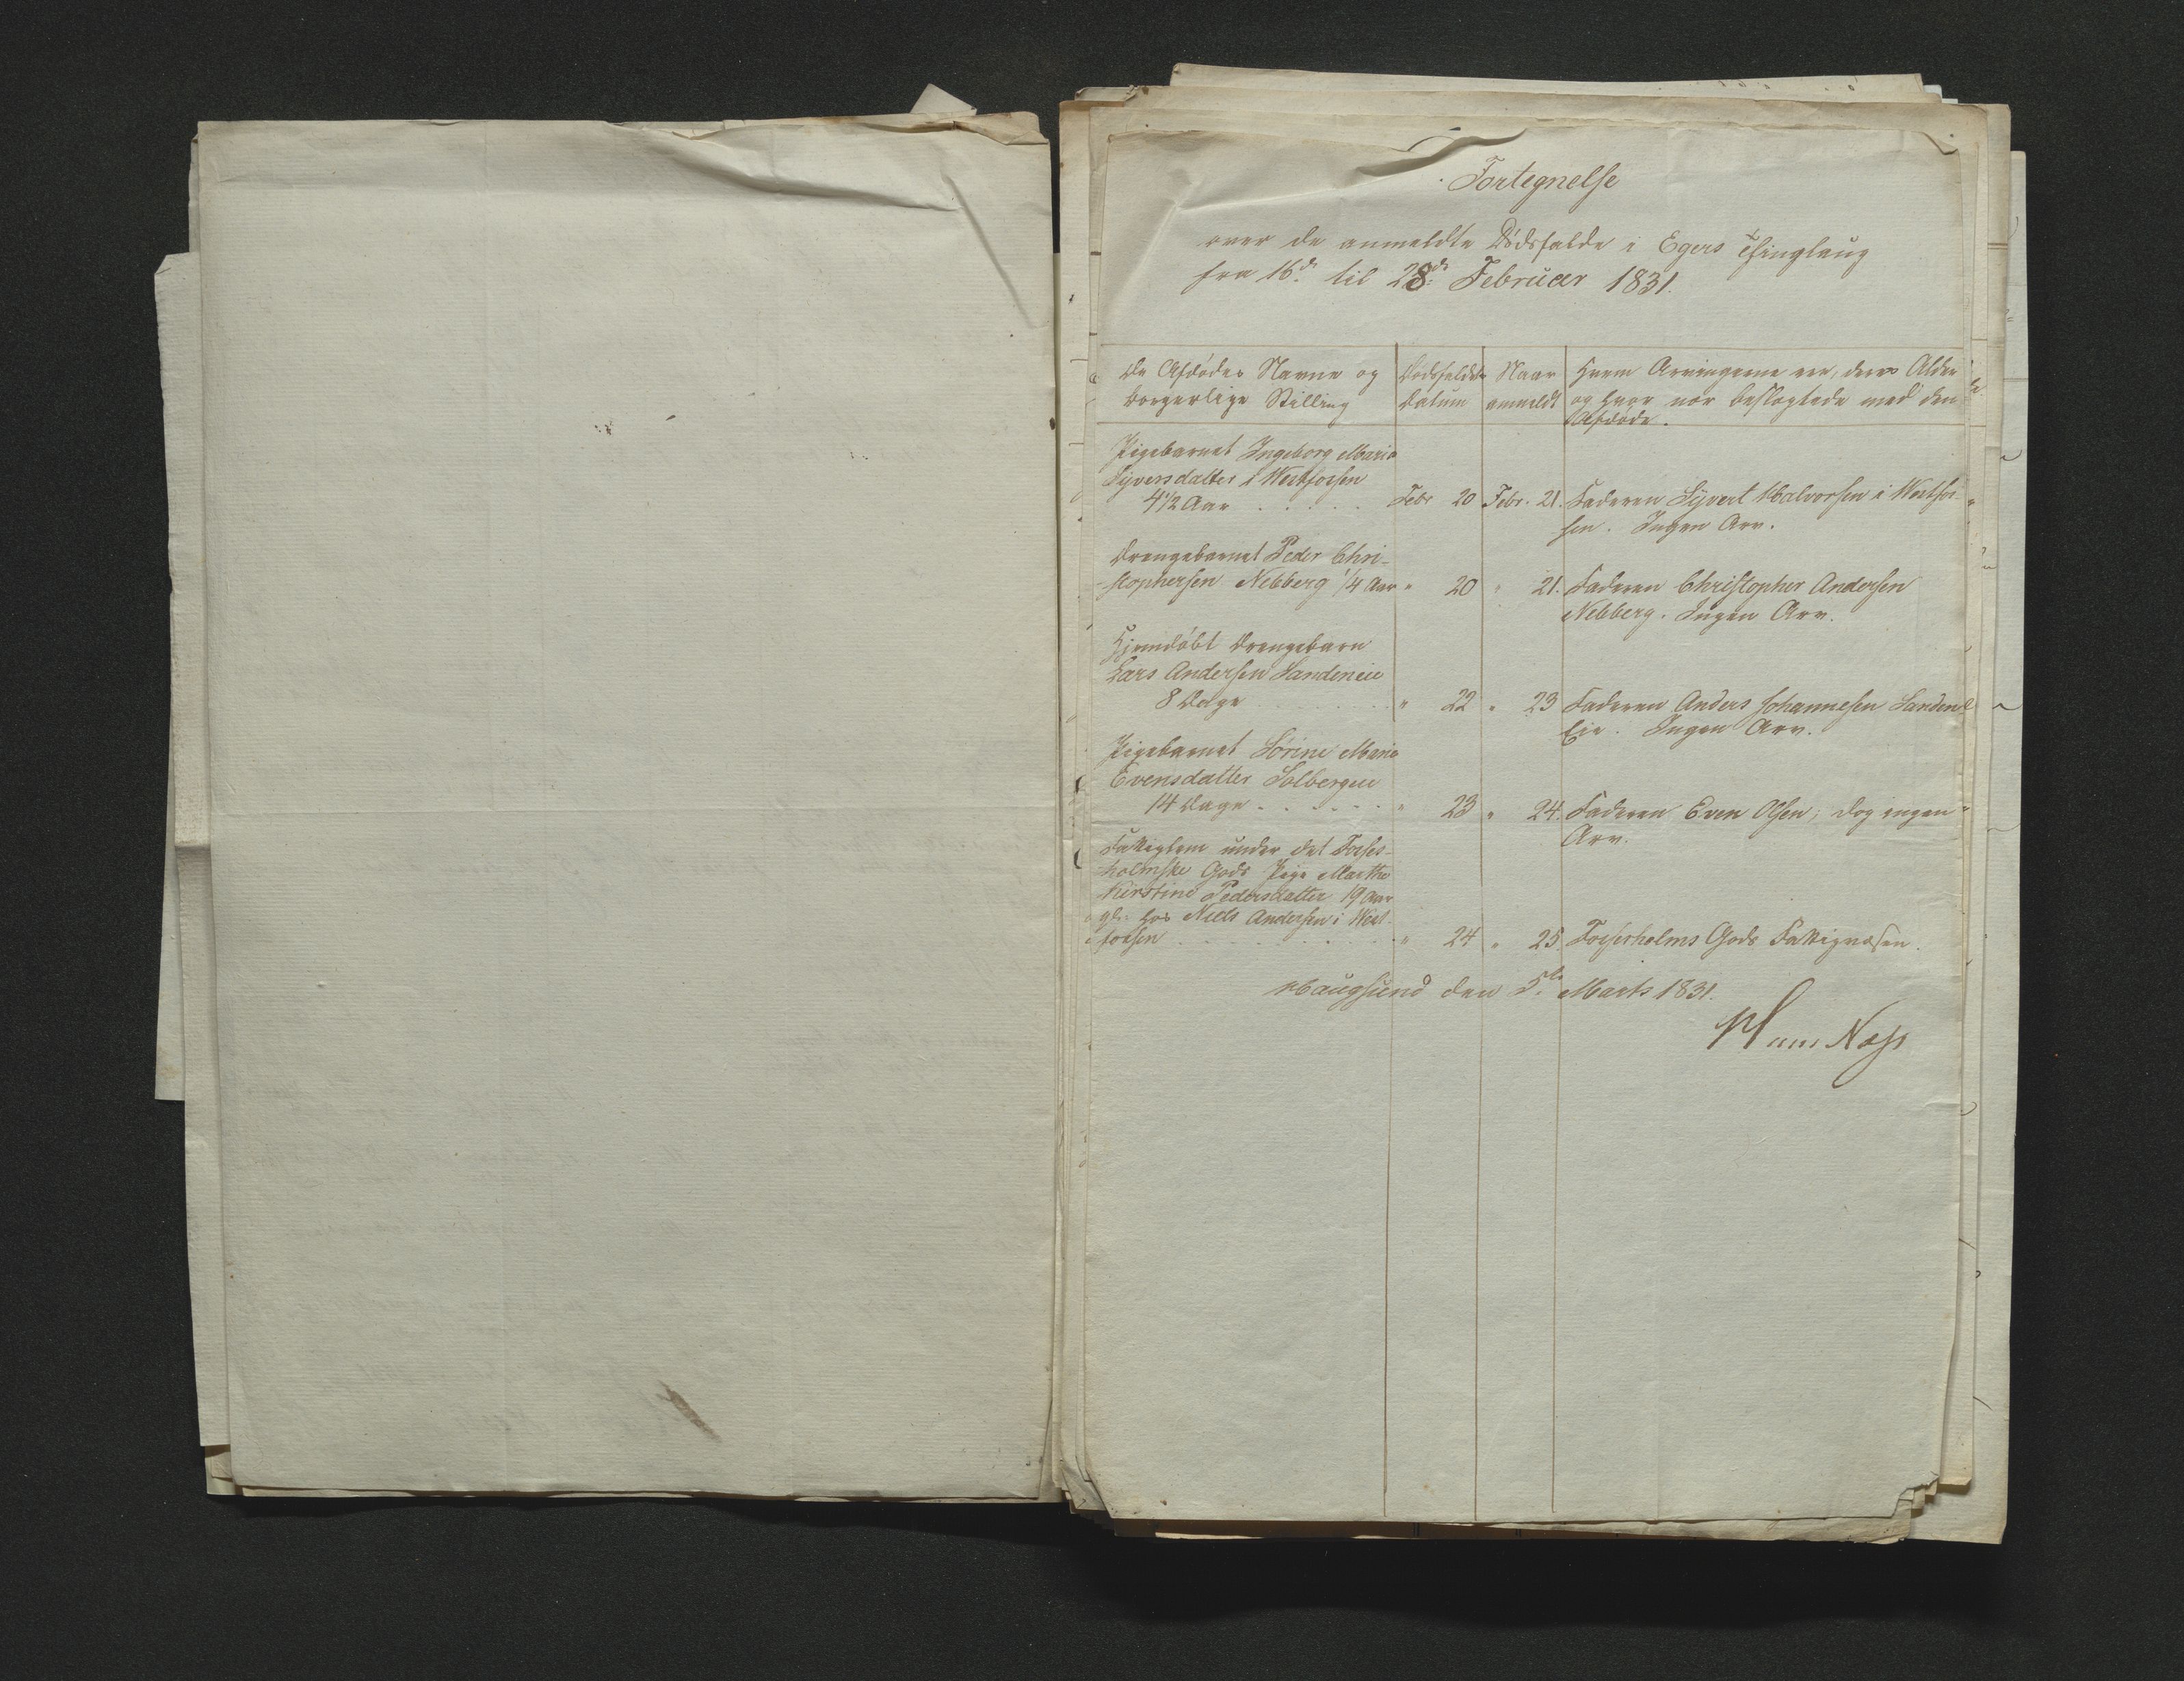 Fortegnelse
over de anmeldte Dødsfalde i Egers Thinglaug
fra 16de til 28de Februar 1831.
De Afdødes Navne og
borgerlige Stilling
Dødsfaldets
Datum
Naar
anmeldt
Hvem Arvingerne ere, deres Alder
og hvor nær beslægtede med den
Afdøde.
Pigebarnet Ingeborg Maria
Syversdatter i Westfossen
4 1/2 Aar . . . . . Febr 20 Febr. 21. Faderen Syvert Halvorsen i Westfos-
sen. Ingen Arv.
Drengebarnet Peder Chri-
stophersen Nebberg 1/4 Aar " 20 " 21. Faderen Christopher Andersen
Nebberg. Ingen Arv.
Hjemdøbt Drengebarn
Lars Andersen Sandeneie
8 Dage . . . . . " 22 " 23 Faderen Anders Johannesen Sanden
Eie. Ingen Arv.
Pigebarnet Sørine Maria
Evensdatter Solbergeie
14 Dage . . . . . " 23 " 24. Faderen Even Olsen; dog ingen
Arv.
Fattiglem under det Fosses-
holmske Gods Pige Marthe
Kirstine Pedersdatter 19 Aar
hos Niels Andersen i West-
fossen . . . . . " 24 " 25 Fossesholms Gods Fattigvæsen.
Haugsund den 5te Marts 1831.